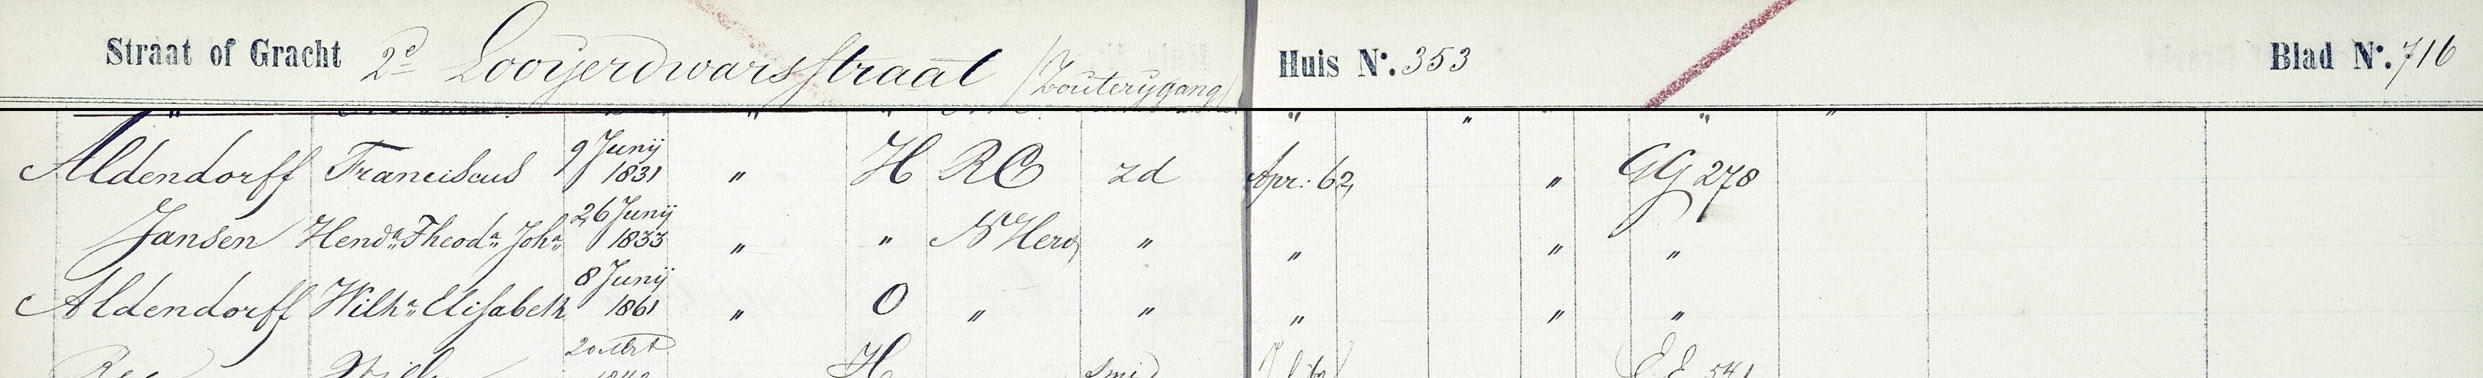 Straat of Gracht 2e Looyerdwarsstraat (Zouterygang) Huis No. 353 Blad No. 716
Aldendorff Franciscus 9 Junij 1831 " H RC zd Apr: 62, " GG 278
Jansen Henda. Theoda. Joha. 26 Junij 1833 " " N Herv " " " "
Aldendorff Wilha. Elisabeth 8 Junij 1861 " O " " " " "
H smid EE 541